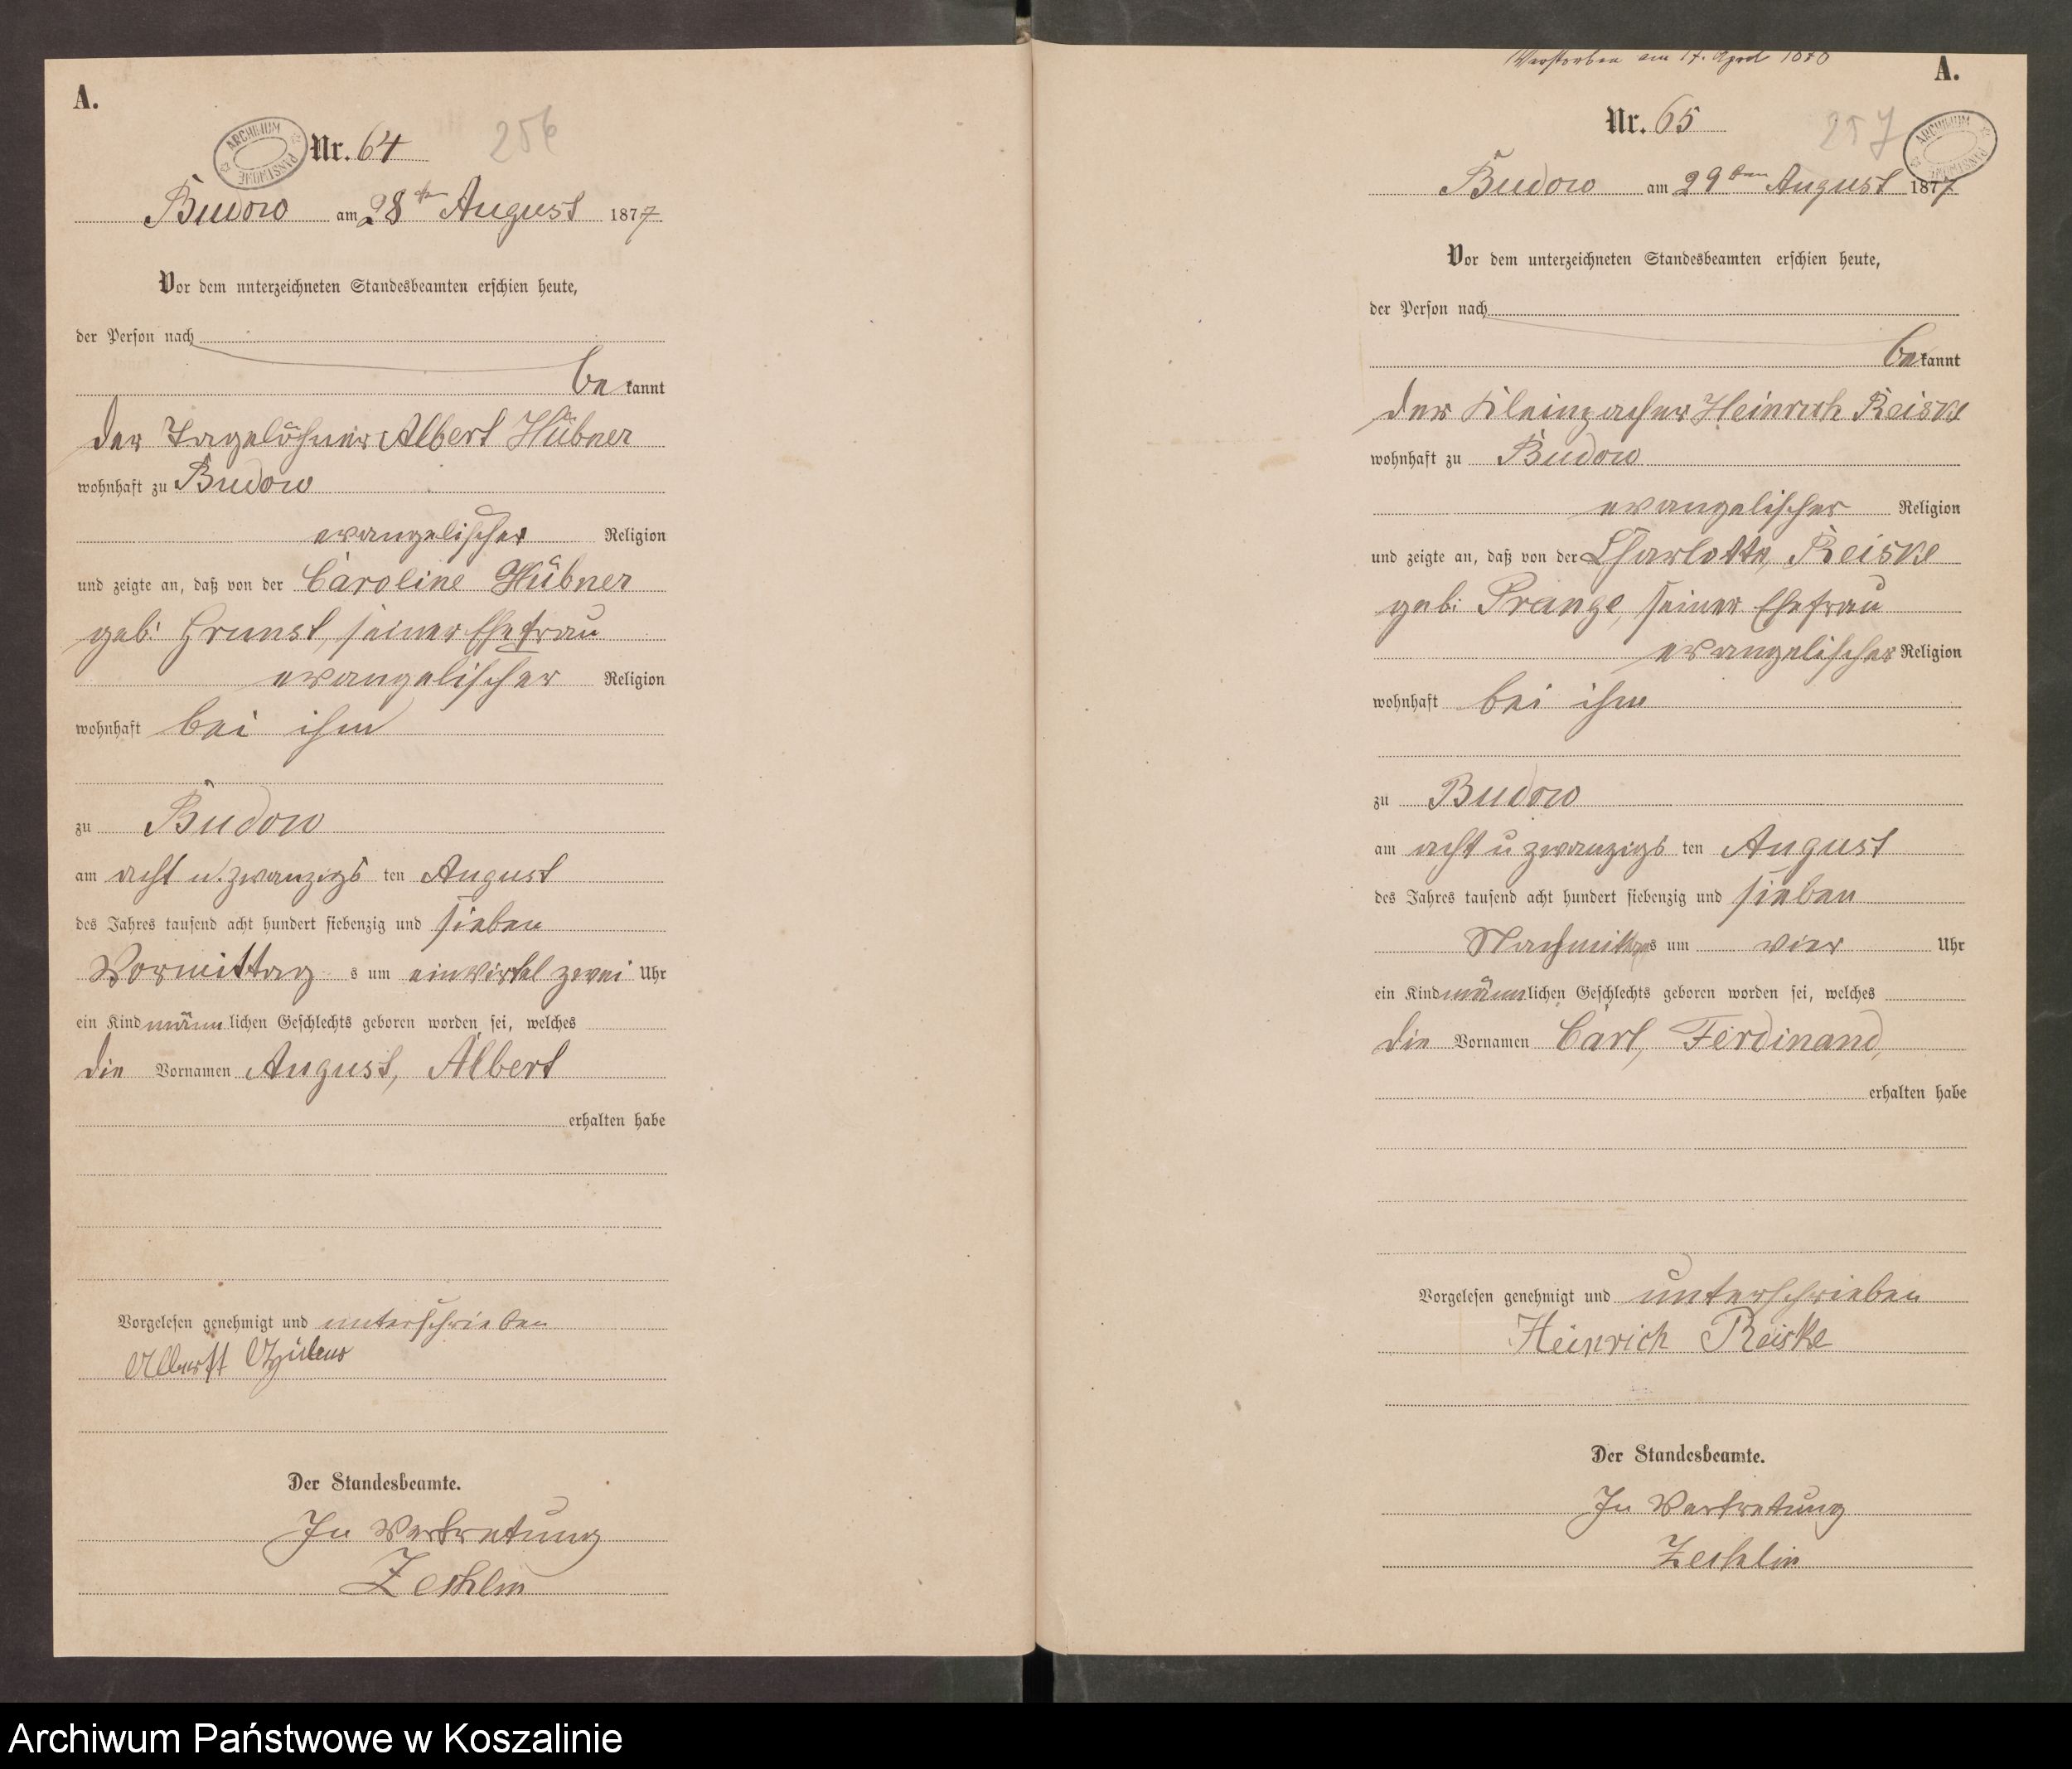 A.
ARCHIWUM PAŃSTWOWE
Nr. 64
256
Budow am 28ten August 1877
Vor dem unterzeichneten Standesbeamten erschien heute,
der Person nach
bekannt
der Tagelöhner Albert Hübner
wohnhaft zu Budow
evangelischer Religion
und zeigte an, daß von der Caroline Hübner
geb. Grunst, seiner Ehefrau
evangelischer Religion
wohnhaft bei ihm
zu Budow
am acht u. zwanzigs ten August
des Jahres tausend acht hundert siebenzig und sieben
Vormittag s um einviertel zwei Uhr
ein Kind männlichen Geschlechts geboren worden sei, welches
die Vornamen August, Albert
erhalten habe
Vorgelesen genehmigt und unterschrieben
Albert Hübner
Der Standesbeamte.
In Vertretung
Zechlin
Verstorben am 17. April
A.
Nr. 65
257
ARCHIWUM PAŃSTWOWE
Budow am 29ten August 1877
Vor dem unterzeichneten Standesbeamten erschien heute,
der Person nach
bekannt
der Kleinpächter Heinrich Reiske
wohnhaft zu Budow
evangelischer Religion
und zeigte an, daß von der Charlotte, Reiske
geb. Prange, seiner Ehefrau
evangelischer Religion
wohnhaft bei ihm
zu Budow
am acht u zwanzigs ten August
des Jahres tausend acht hundert siebenzig und sieben
Nachmittags um vier Uhr
ein Kind männlichen Geschlechts geboren worden sei, welches
die Vornamen Carl, Ferdinand,
erhalten habe
Vorgelesen genehmigt und unterschrieben
Heinrich Reiske
Der Standesbeamte.
In Vertretung
Zechlin
Archiwum Państwowe w Koszalinie